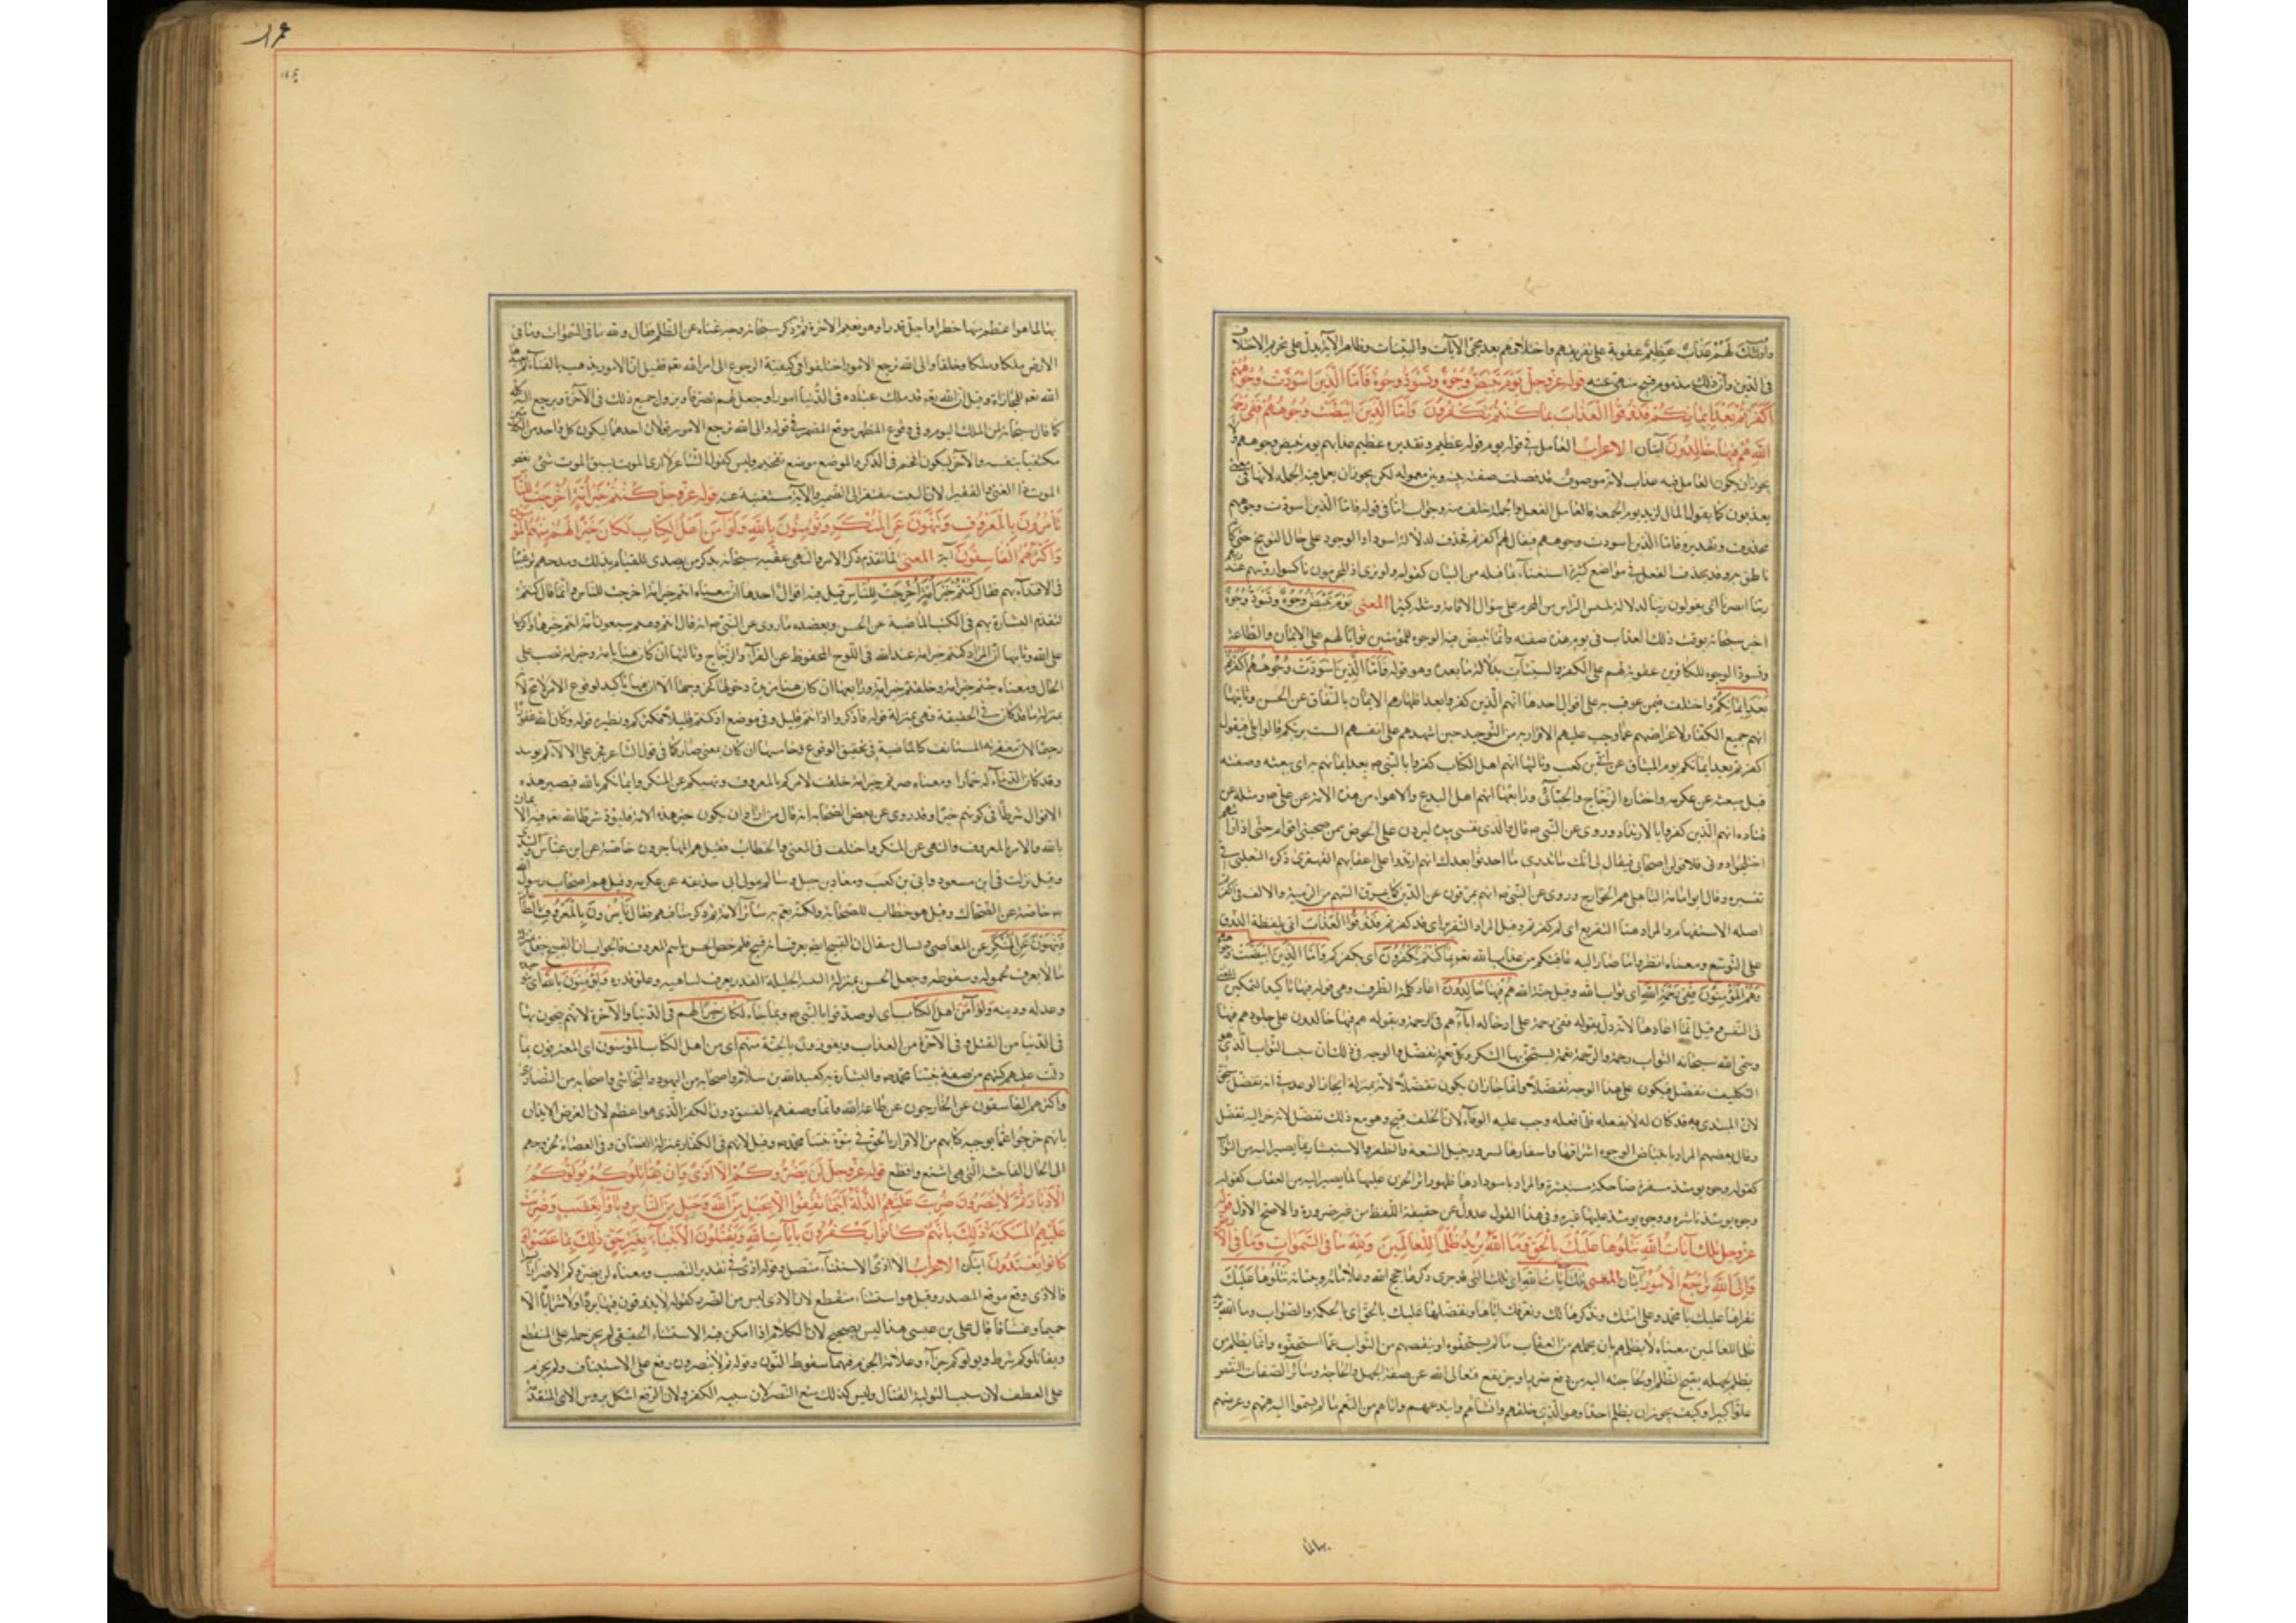 واولئك لهم عذاب عظيم عقوبة على تفرقهم واختلافهم بعد مجئ الآيات والبينات وظاهر الآية يدل على تحريم الاختلاف
فى الدين وأن ذلك مذموم قبيح منهى عنه قوله عز وجل يوم تبيض وجوه وتسود وجوه فأما الذين اسودت وجوههم
أكفرتم بعد ايمانكم فذوقوا العذاب بما كنتم تكفرون وأما الذين ابيضت وجوههم ففى رحمة
الله هم فيها خالدون آيتان الاعراب العامل فى قوله يوم قوله عظيم وتقديره عظيم عذابهم يوم تبيض وجوههم ولا
يجوز ان يكون العامل فيه عذاب لانه موصوف قد فصلت صفته بينه وبين معموله لكن يجوز ان يعمل فيه الجملة لانها فى معنى
يعذبون كما يقول المال لزيد يوم الجمعة فالعامل الفعل والجملة خلف منه وجواب اما فى قوله فاما الذين اسودت وجوههم
محذوف وتقديره فاما الذين اسودت وجوههم فيقال لهم أكفرتم فحذف لدلالة اسوداد الوجوه على حال التوبيخ حتى كأنه
ناطق به وقد يحذف الفعل فى مواضع كثيرة استغناء بما قبله من البيان كقوله ولو ترى اذ المجرمون ناكسوا رؤسهم عند ربهم
ربنا ابصرنا اى يقولون ربنا لدلالة تنكيس الرأس من المجرم على سؤال الاقالة ومثله كثير المعنى يوم تبيض وجوه وتسود وجوه
اخبر سبحانه بوقت ذلك العذاب فى يوم هذه صفته وانما تبيض فيه الوجوه للمؤمنين ثوابا لهم على الايمان والطاعة
وتسود الوجوه للكافرين عقوبة لهم على الكفر والسيئات بدلالة ما بعده وهو قوله فأما الذين اسودت وجوههم أكفرتم
بعد ايمانكم واختلف فيمن عوقب به على اقوال احدها انهم الذين كفروا بعد اظهارهم الايمان بالنفاق عن الحسن وثانيها
انهم جميع الكفار لاعراضهم عما وجب عليهم الاقرار به من التوحيد حين اشهدهم على انفسهم الست بربكم قالوا بلى فيقول
اكفرتم بعد ايمانكم يوم الميثاق عن ابى بن كعب وثالثها انهم اهل الكتاب كفروا بالنبى ص بعد ايمانهم به اى بنعته وصفته
قبل مبعثه عن عكرمه واختاره الزجاج والجبائى ورابعها انهم اهل البدع والاهواء من هذه الامة عن على ع ومثله عن
قتاده انهم الذين كفروا بالارتداد وروى عن النبى ص قال والذى نفسى بيده ليردن على الحوض ممن صحبنى اقوام حتى اذا رأيتهم
اختلجوا دونى فلاقولن اصحابى فيقال لى انك لا تدرى ما احدثوا بعدك انهم ارتدوا على اعقابهم القهقرى ذكره الثعلبى فى
تفسيره وقال ابو امامة الباهلى هم الخوارج وروى عن النبى ص انهم يمرقون عن الدين كما يمرق السهم من الرمية والالف فى اكفرتم
اصله الاستفهام والمراد هنا التقريع اى لم كفرتم وقيل المراد التقرير اى قد كفرتم فذوقوا العذاب اتى بلفظة الذوق
على التوسع ومعناه انظروا ما صار اليه عاقبتكم من عذاب الله تعالى بما كنتم تكفرون اى بكفركم وأما الذين ابيضت وجوههم
وهم المؤمنون ففى رحمة الله اى ثواب الله وقيل جنة الله هم فيها خالدون اعاد كلمة الظرف وهى قوله فيها تاكيدا لتمكين المعنى
فى النفس وقيل انما اعادها لانه دل بقوله ففى رحمة على ادخاله اياهم فى الرحمة وبقوله هم فيها خالدون على خلودهم فيها
وسمى الله سبحانه الثواب رحمة والرحمة نعمة يستحق بها الشكر وكل نعمة تفضل والوجه فى ذلك ان سبب الثواب الذى هو
التكليف تفضل فيكون على هذا الوجه تفضلا وانما جاز ان يكون تفضلا لانه بمنزلة ايجاز الوعد فى انه تفضل مستحق
لان المبتدى به قد كان له لا يفعله فلما فعله وجب عليه الوفاء لان الخلف قبيح وهو مع ذلك تفضل لانه جر اليه تفضل
وقال بعضهم المراد بابيضاض الوجوه اشراقها واسفارها لسرور بنيل البغية والظفر والاستبشار بما يصير اليه من الثواب
كقوله وجوه يومئذ مسفرة ضاحكة مستبشرة والمراد باسودادها ظهور اثر الحزن عليها لما يصير اليه من العقاب كقوله
وجوه يومئذ باسرة ووجوه يومئذ عليها غبرة وفى هذا القول عدول عن حقيقة اللفظ من غير ضرورة والاصح الاول قوله
عز وجل تلك آيات الله نتلوها عليك بالحق وما الله يريد ظلما للعالمين ولله ما فى السموات وما فى الارض
والى الله ترجع الامور آيتان المعنى تلك آيات الله اى تلك التى قد جرى ذكرها حجج الله وعلاماته وبيناته نتلوها عليك
نقرأها عليك يا محمد وعلى امتك ونذكرها لك ونعرفك اياها ونقصها عليك بالحق اى بالحكمة والصواب وما الله يريد
ظلما للعالمين معناه لا يظلمهم بان يحملهم من العقاب ما لم يستحقوه او ينقصهم من الثواب عما استحقوه وانما يظلم من
يظلم لجهله بقبح الظلم او لحاجته اليه من دفع ضرر او جر نفع فتعالى الله عن صفة الجهل والحاجة وسائر الصفات النقص
علوا كبيرا وكيف يجوز ان يظلم احدا وهو الذى خلقهم وانشأهم وابتدعهم واتاهم من النعم ما لم تسموا اليه همهم وعرضهم
بها لما هو اعظم منها خطرا واجل قدرا وهو نعيم الاخرة ثم ذكر سبحانه وجه غناه عن الظلم فقال ولله ما فى السموات وما فى
الارض ملكا وملكا وخلقا والى الله ترجع الامور اختلفوا فى كيفية الرجوع الى امر الله تعالى فقيل ان الامور يذهب بالفناء ثم يعيدها
الله تعالى للمجازاة وقيل ان الله تعالى قد ملك عباده فى الدنيا امورا وجعل لهم تصرفا ويزول جميع ذلك فى الآخرة ويرجع اليه كله
كما قال سبحانه لمن الملك اليوم وفى وقوع المظهر موقع المضمر فى قوله والى الله ترجع الامور قولان احدهما ليكون كل واحد من الكلامين
مكتفيا بنفسه والآخر ليكون افخم فى الذكر والموضع موضع تفخيم وليس كقول الشاعر لا ارى الموت يسبق الموت شئ نغص
الموت ذا الغنى والفقير لان البيت مفتقر الى الضمير والآية مستغنية عنه قوله عز وجل كنتم خير امة اخرجت للناس
تأمرون بالمعروف وتنهون عن المنكر وتؤمنون بالله ولو آمن اهل الكتاب لكان خيرا لهم منهم المؤمنون
واكثرهم الفاسقون آية المعنى لما تقدم ذكر الامر والنهى عقبه سبحانه بذكر من تصدى للقيام بذلك ومدحهم ترغيبا
فى الاقتداء بهم فقال كنتم خير امة اخرجت للناس قيل فيه اقوال احدها ان معناه انتم خير امة اخرجت للناس وانما قال كنتم
لتقدم البشارة بهم فى الكتب الماضية عن الحسن ويعضده ما روى عن النبى ص انه قال انتم وفيتم سبعون امة انتم خيرها واكرمها
على الله وثانيها ان المراد كنتم خير امة عند الله فى اللوح المحفوظ عن الفراء والزجاج وثالثها ان كان هنا تامة وخير امة نصب على
الحال ومعناه وجدتم خير امة وخلقتم خير امة ورابعها ان كان هنا مزيدة دخولها كخروجها الا ان فيها تاكيد لوقوع الامر لا محالة
بمنزلة ما قد كان فى الحقيقة فهى بمنزلة قوله فاذكروا اذ انتم قليل وفى موضع اذ كنتم قليلا فكثركم ونظيره قوله وكان الله غفورا
رحيما لان مغفرته المستانف كالماضية فى تحقيق الوقوع وخامسها ان كان بمعنى صار كما فى قول الشاعر فخر على الالاءة لم يوسد
وقد كان الدماء له خمارا ومعناه صرتم خير امة خلقت لامركم بالمعروف ونهيكم عن المنكر وايمانكم بالله فيصير هذه
الاقوال شرطا فى كونهم خيرا وقد روى عن بعض الصحابة انه قال من اراد ان يكون خير هذه الامة فليؤد شرط الله تعالى فيه الايمان
بالله والامر بالمعروف والنهى عن المنكر واختلف فى المعنى بالخطاب فقيل هم المهاجرون خاصة عن ابن عباس والسدى
وقيل نزلت فى ابن مسعود وابى بن كعب ومعاذ بن جبل وسالم مولى ابى حذيفه عن عكرمه وقيل هم اصحاب رسول الله
ص خاصة عن الضحاك وقيل هو خطاب للصحابة ولكنه يعم سائر الامة ثم ذكر مناقبهم فقال تأمرون بالمعروف بالطاعات
وتنهون عن المنكر عن المعاصى ويسال فيقال ان القبيح ايضا يعرف انه قبيح فلم خص الحسن باسم المعروف فالجواب ان القبيح جعل بمنزلة
ما لا يعرف لخموله وسقوطه وجعل الحسن بمنزلة النبيه الجليل القدر يعرف لنباهته وعلو قدره وتؤمنون بالله اى بتوحيده
وعدله ودينه ولو آمن اهل الكتاب اى لو صدقوا بالنبى ص وبما جاء به لكان خيرا لهم فى الدنيا والآخرة لانهم ينجون بها
فى الدنيا من القتل وفى الآخرة من العذاب ويفوزون بالجنة منهم اى من اهل الكتاب المؤمنون اى المعترفون بما
دلت عليهم كتبهم من صفة نبينا محمد ص والبشارة به كعبد الله بن سلام واصحابه من اليهود والنجاشى واصحابه من النصارى
واكثرهم الفاسقون عن الخارجون عن طاعة الله وانما وصفهم بالفسق دون الكفر الذى هو اعظم لان الغرض الايذان
بانهم خرجوا عما يوجبه كتابهم من الاقرار بالحق فى نبوة نبينا محمد ص وقيل لانهم فى الكفار بمنزلة الفساق وفى العصاة بخروجهم
الى الحال الفاحشة التى هى اشنع وافظع قوله عز وجل لن يضروكم الا اذى وان يقاتلوكم يولوكم
الادبار ثم لا ينصرون ضربت عليهم الذلة اينما ثقفوا الا بحبل من الله وحبل من الناس وباؤا بغضب وضربت
عليهم المسكنة ذلك بانهم كانوا يكفرون بآيات الله ويقتلون الانبياء بغير حق ذلك بما عصوا و
كانوا يعتدون آيتان الاعراب الا اذى الاستثناء متصل وقوله اذى فى تقدير النصب ومعناه لن يضروكم الا ضررا يسيرا
فالاذى وقع موقع المصدر وقيل هو استثناء منقطع لان الاذى ليس من الضرر كقوله لا يذوقون فيها بردا ولا شرابا الا
حميما وغساقا قال على بن عيسى هذا ليس بصحيح لان الكلام اذا امكن فيه الاستثناء الحقيقى لم يجز حمله على المنقطع
ويقاتلوكم شرط ويولوكم جزاء وعلامة الجزم فيهما سقوط النون وقوله ثم لا ينصرون رفع على الاستيناف ولم يجزم
على العطف لان سبب التولية القتال وليس كذلك منع النصر لان سببه الكفر ولان الرفع اشكل بروس الاى المتقدمة